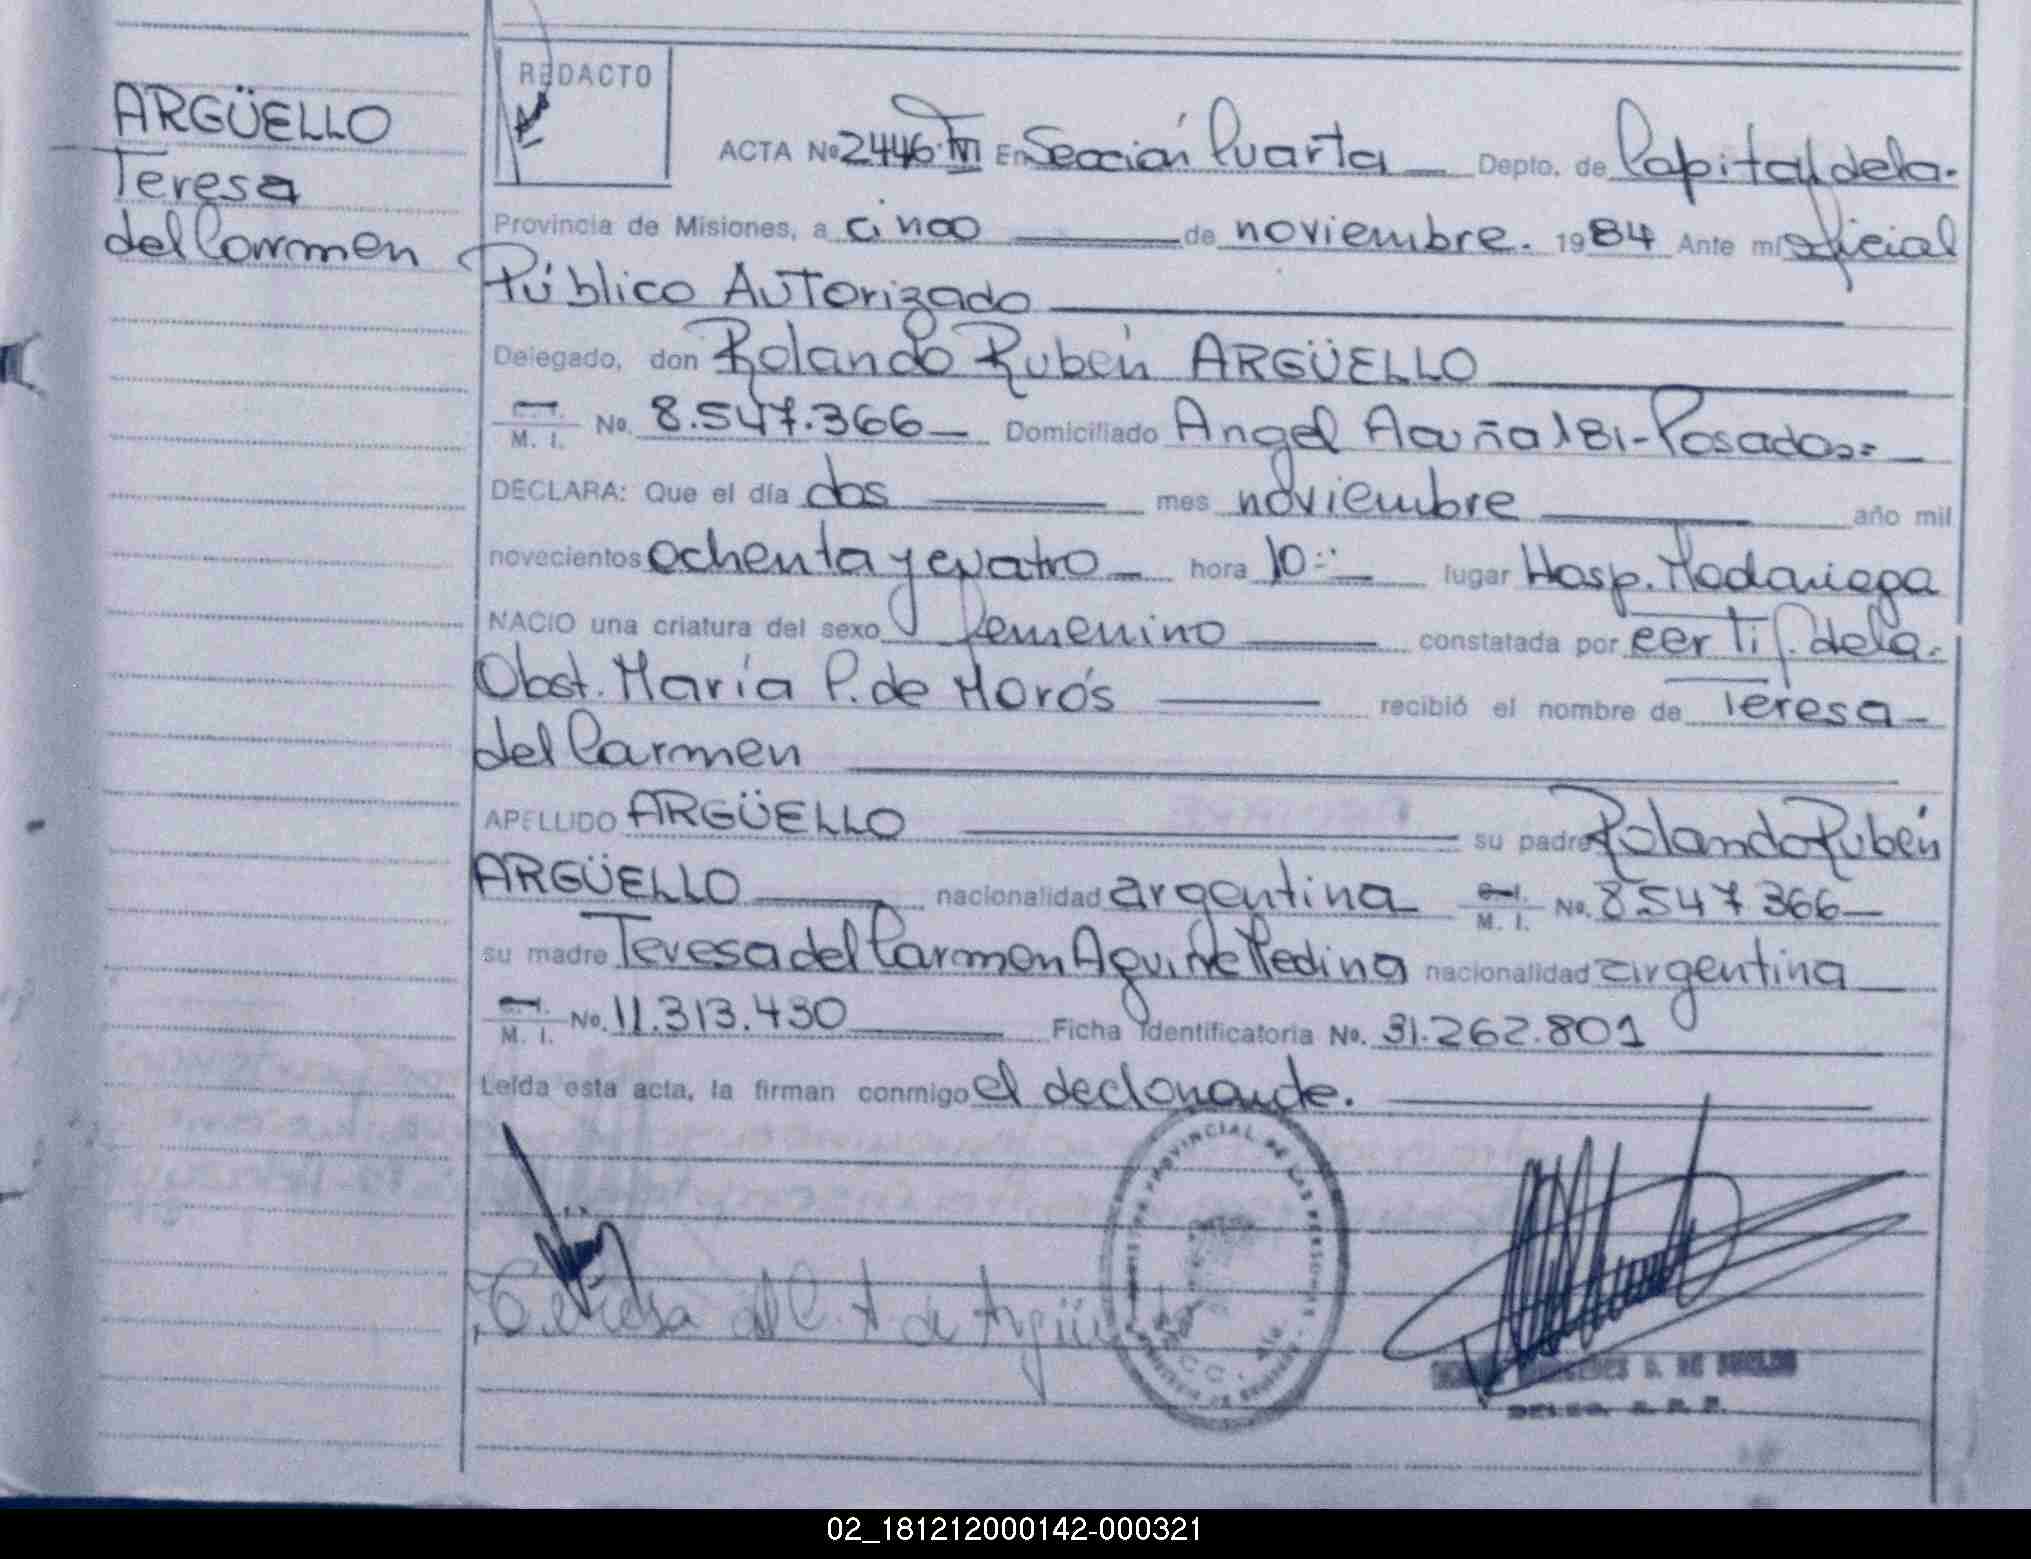 ARGÜELLO
Teresa
del Carmen
REDACTO
ACTA No 2446 En Sección Cuarta Depto. de Capital de la
Provincia de Misiones, a cinco de noviembre. 1984 Ante mí oficial
Público Autorizado
Delegado, don Rolando Rubén ARGÜELLO
M. I. No. 8.547.366 Domiciliado Angel Acuña 181-Posadas=
DECLARA: Que el día dos mes noviembre año mil
novecientos ochenta y cuatro hora 10 lugar Hosp. Madariaga
NACIO una criatura del sexo femenino constatada por certif. de la
Obst. María P. de Morós recibió el nombre de Teresa
del Carmen
APELLIDO ARGÜELLO su padre Rolando Rubén
ARGÜELLO nacionalidad argentina M. I. No. 8547366
su madre Teresa del Carmen Aguirre Medina nacionalidad argentina
M. I. No. 11.313.430 Ficha Identificatoria No. 31.262.801
Leída esta acta, la firman conmigo el declarante.
PROVINCIAL DE LAS PERSONAS
Teresa del C. A. de Argüello
02_181212000142-000321